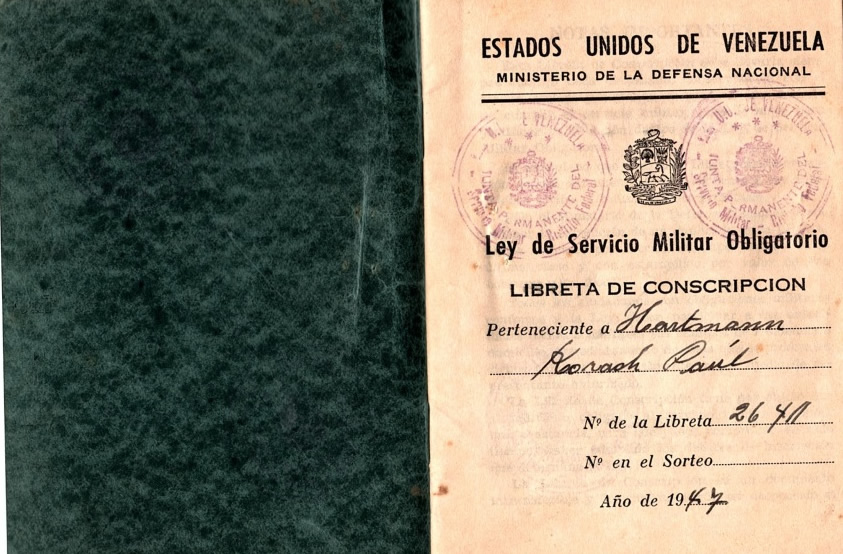 ESTADOS UNIDOS DE VENEZUELA
MINISTERIO DE LA DEFENSA NACIONAL
EE. UU. DE VENEZUELA
JUNTA PERMANENTE DEL
Servicio Militar Distrito Federal
EE. UU. DE VENEZUELA
JUNTA PERMANENTE DEL
Servicio Militar Distrito Federal
Ley de Servicio Militar Obligatorio
LIBRETA DE CONSCRIPCION
Perteneciente a Hartmann
Korach Paúl
Nº de la Libreta
Nº en el Sorteo
Año de 1947